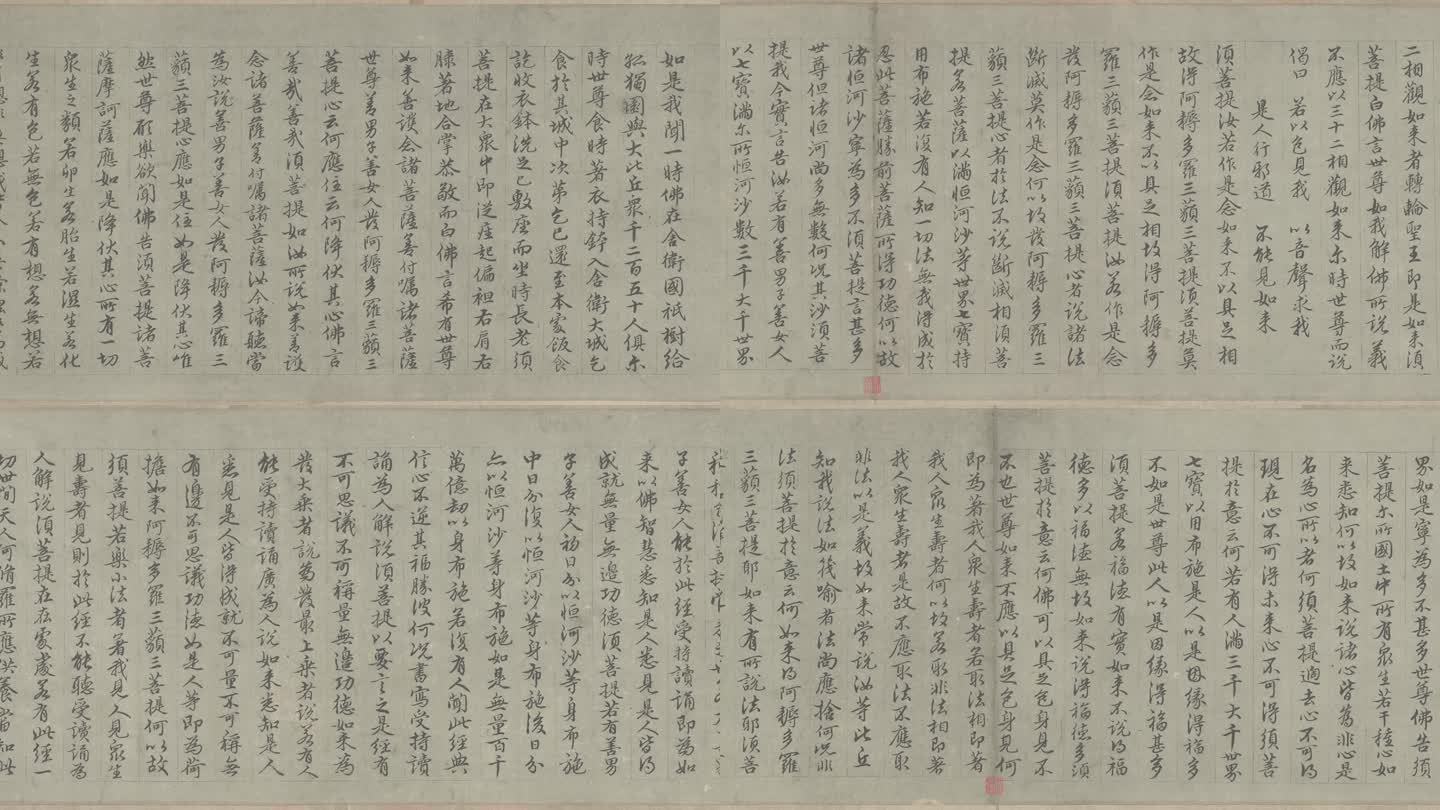 二相觀如来者轉輪聖王即是如来須
菩提白佛言世尊如我解佛所說義
不應以三十二相觀如来尒時世尊而說
偈曰 若以色見我 以音聲求我
是人行邪道 不能見如来
須菩提汝若作是念如来不以具足相
故得阿耨多羅三藐三菩提須菩提莫
作是念如来不以具足相故得阿耨多
羅三藐三菩提須菩提汝若作是念
發阿耨多羅三藐三菩提心者說諸法
斷滅莫作是念何以故發阿耨多羅三
藐三菩提心者於法不說斷滅相須菩
提若菩薩以滿恒河沙等世界七寶持
用布施若復有人知一切法無我得成於
忍此菩薩勝前菩薩所得功德何以故
諸恒河沙寧為多不須菩提言甚多
世尊但諸恒河尚多無數何況其沙須菩
提我今實言告汝若有善男子善女人
以七寶滿尒所恒河沙數三千大千世界
如是我聞一時佛在舍衛國祇樹給
孤獨園與大比丘眾千二百五十人俱尒
時世尊食時著衣持鉢入舍衛大城乞
食於其城中次第乞已還至本處飯食
訖收衣鉢洗足已敷座而坐時長老須
菩提在大眾中即從座起偏袒右肩右
膝著地合掌恭敬而白佛言希有世尊
如来善護念諸菩薩善付囑諸菩薩
世尊善男子善女人發阿耨多羅三藐三
菩提心云何應住云何降伏其心佛言
善哉善哉須菩提如汝所說如来善護
念諸菩薩善付囑諸菩薩汝今諦聽當
為汝說善男子善女人發阿耨多羅三
藐三菩提心應如是住如是降伏其心唯
然世尊願樂欲聞佛告須菩提諸菩
薩摩訶薩應如是降伏其心所有一切
眾生之類若卵生若胎生若濕生若化
生若有色若無色若有想若無想若
界如是寧為多不甚多世尊佛告須
菩提尒所國土中所有眾生若干種心如
来悉知何以故如来說諸心皆為非心是
名為心所以者何須菩提過去心不可得
現在心不可得未来心不可得須菩
提於意云何若有人滿三千大千世界
七寶以用布施是人以是因緣得福多
不如是世尊此人以是因緣得福甚多
須菩提若福德有實如来不說得福
德多以福德無故如来說得福德多須
菩提於意云何佛可以具足色身見不
不也世尊如来不應以具足色身見何
即為著我人眾生壽者若取法相即著
我人眾生壽者何以故若取非法相即著
我人眾生壽者是故不應取法不應取
非法以是義故如来常說汝等比丘
知我說法如筏喻者法尚應捨何況非
法須菩提於意云何如来得阿耨多羅
三藐三菩提耶如来有所說法耶須菩
子善女人能於此經受持讀誦即為如
来以佛智慧悉知是人悉見是人皆得
成就無量無邊功德須菩提若有善男
子善女人初日分以恒河沙等身布施
中日分復以恒河沙等身布施後日分
亦以恒河沙等身布施如是無量百千
萬億劫以身布施若復有人聞此經典
信心不逆其福勝彼何況書寫受持讀
誦為人解說須菩提以要言之是經有
不可思議不可稱量無邊功德如来為
發大乘者說為發最上乘者說若有人
能受持讀誦廣為人說如来悉知是人
悉見是人皆得成就不可量不可稱無
有邊不可思議功德如是人等即為荷
擔如来阿耨多羅三藐三菩提何以故
須菩提若樂小法者著我見人見眾生
見壽者見則於此經不能聽受讀誦為
人解說須菩提在在處處若有此經一
切世間天人阿脩羅所應供養當知此